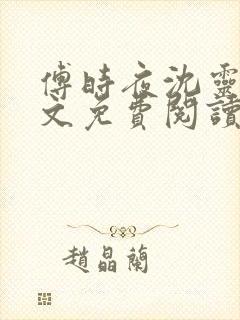 傅時夜沈靈
文免費閱讀
趙晶蘭